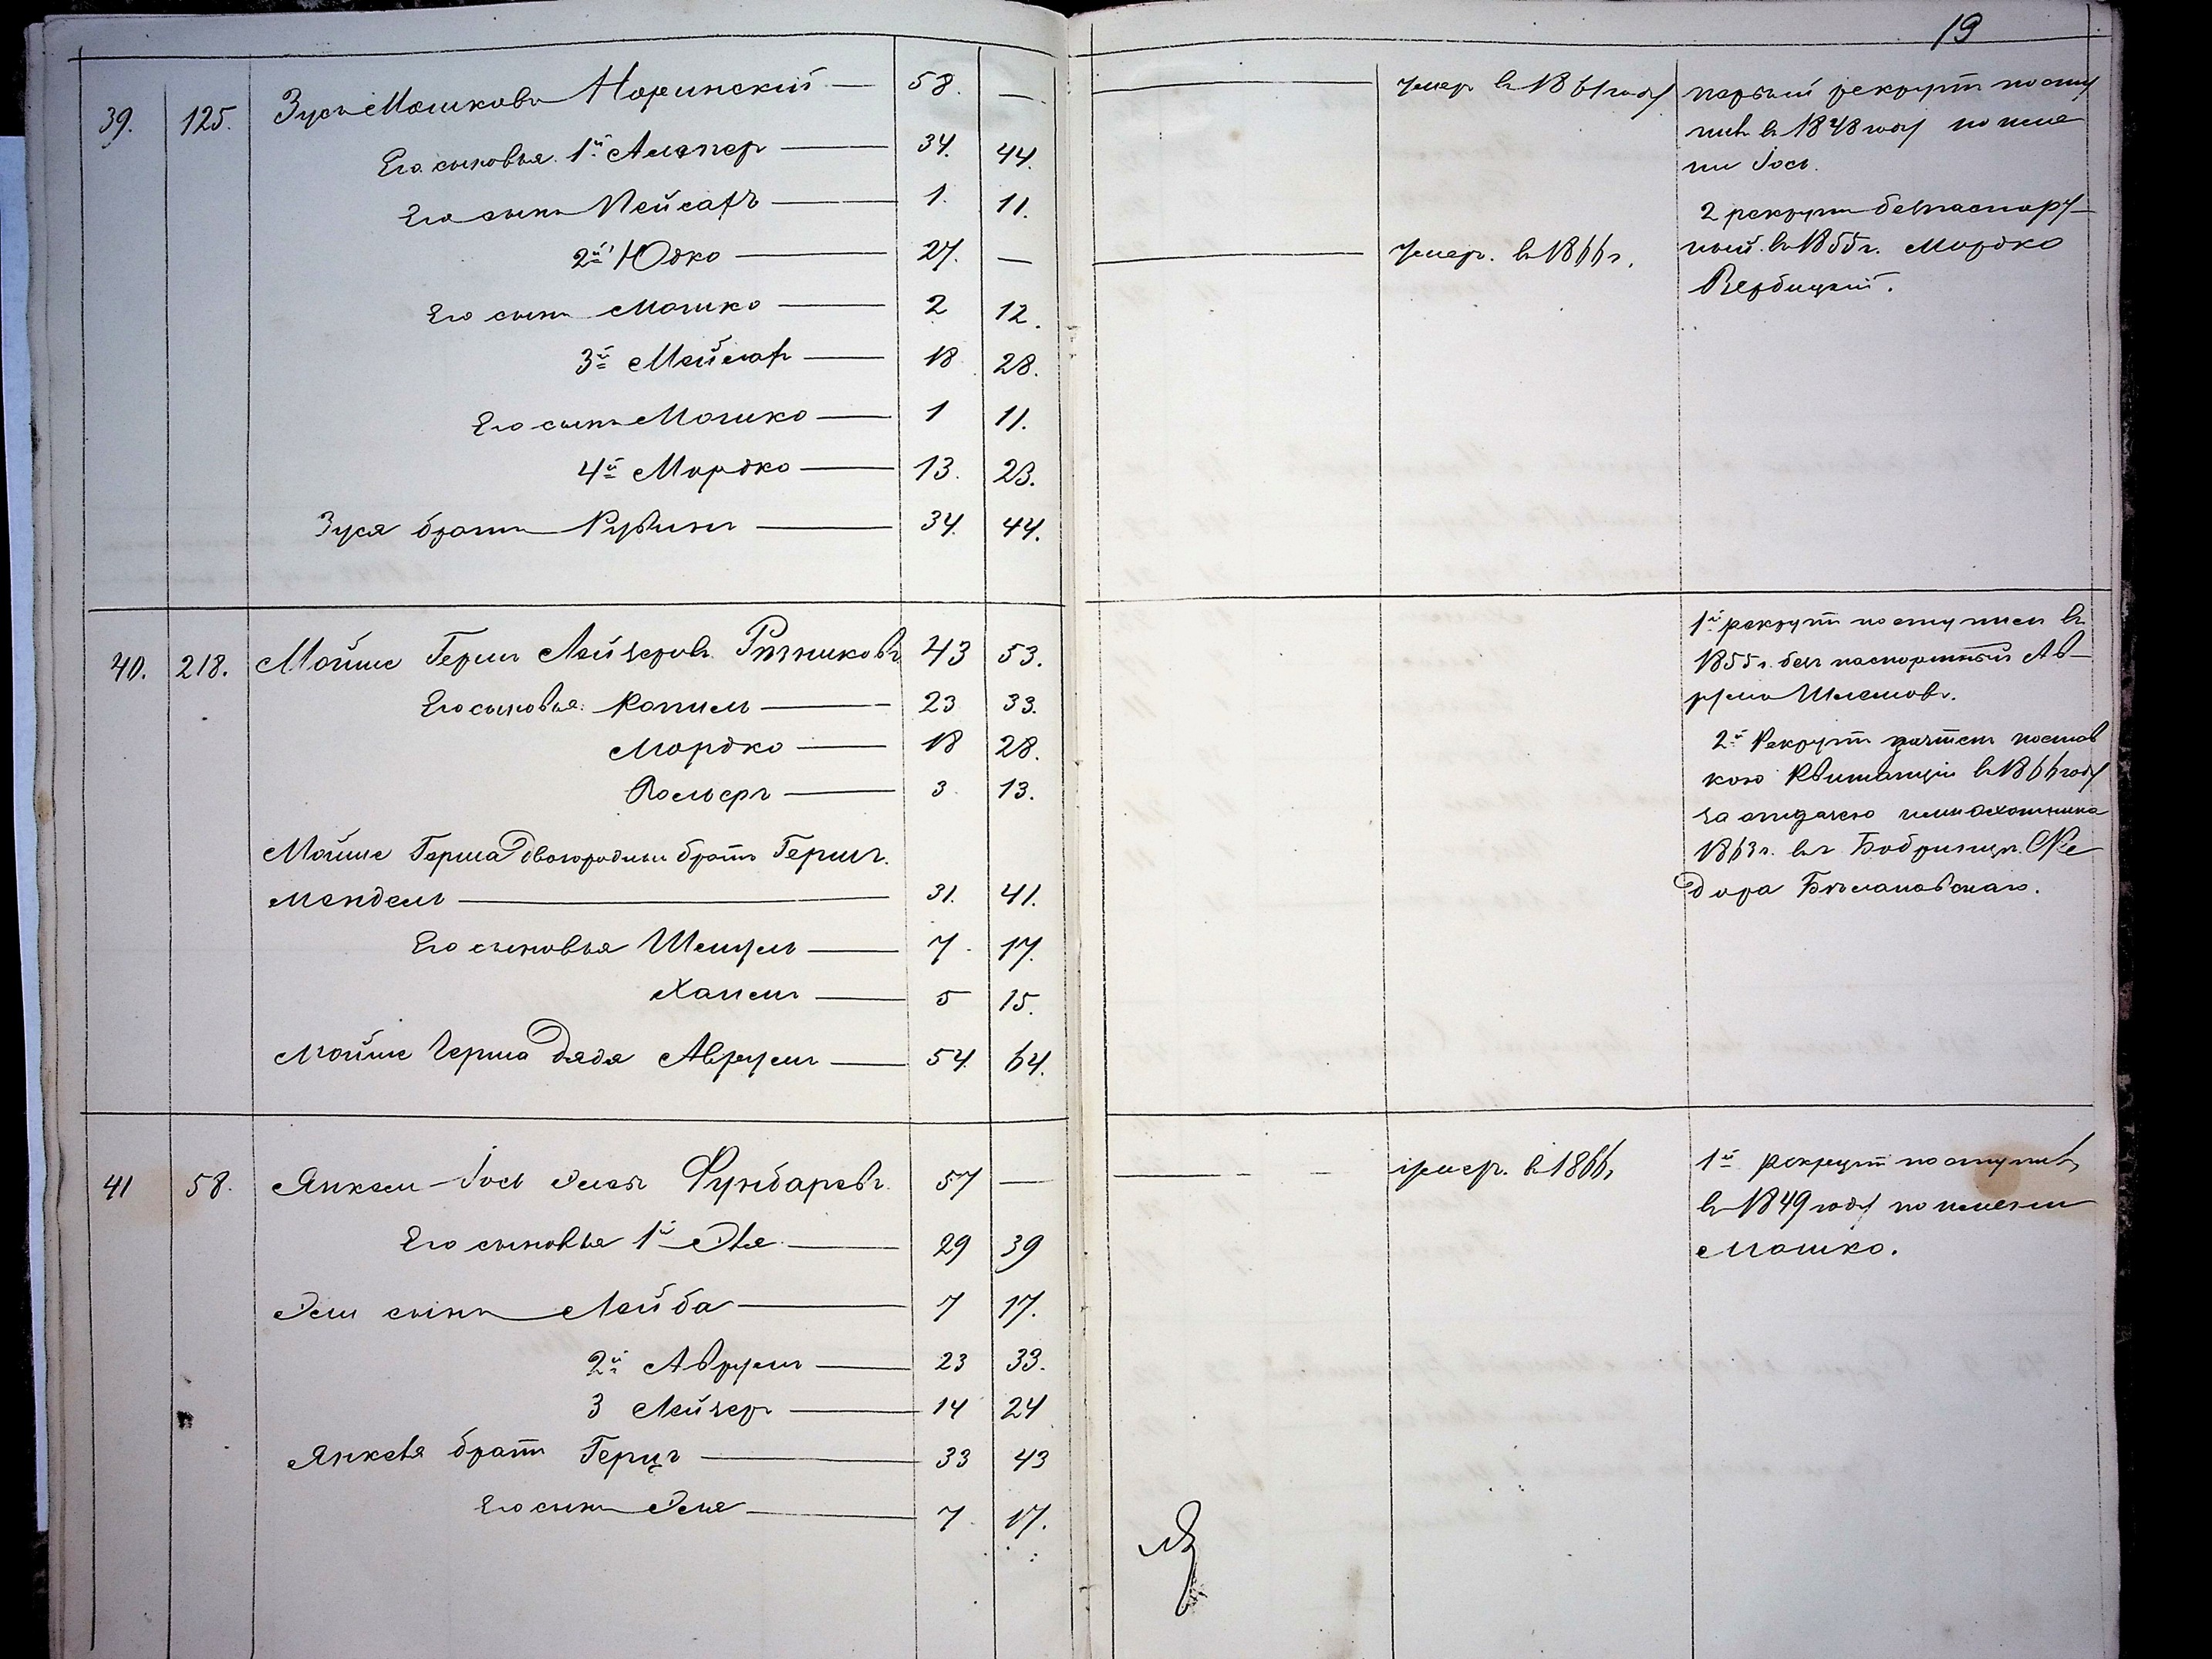 19
39. 125. Зусь Мошковъ Норинскій — 58. —
Его сыновья 1й — 34. 44.
Его сынъ Пейсахъ — 1. 11.
2й Юдко — 27. —
Его сынъ Мошко — 2 12.
3й — 18 28.
Его сынъ Мошко — 1 11.
4й Мордко — 13. 23.
Зуся братъ Рувинъ — 34. 44.
умеръ въ 1861 году
умеръ. въ 1866 г.
первый рекрутъ посту
пилъ въ 1848 году по име
ни Іось.
2 рекрутъ безпаспорт
ный въ 1855 г. Мордко
Вербицкій.
40. 218. Мойше Гершъ Лейзеровъ Рѣзниковъ 43 53.
Его сыновья: Копель — 23 33.
Мордко — 18 28.
— 3 13.
Мойше Герша двоюродный братъ Гершъ
Мендель — 31. 41.
Его сыновья — 7. 17.
— 5 15.
Мойше Герша дядя Аврумъ — 54. 64.
1й рекрутъ поступилъ въ
1855 г. безпаспортный Ав-
румъ Шлемовъ.
2й Рекрутъ зачтенъ
квитанціи въ 1866 году
за отдачею
1863 г. въ Бобринцѣ
дора
41 58. Янкель-Іось Элевъ 57 —
Его сыновья 1й Эля — 29 39
Эли сынъ Лейба — 7 17.
2й Аврумъ — 23 33.
3 Лейзеръ — 14 24
Янкеля братъ Герцъ — 33 43
Его сынъ Эля — 7 17.
умеръ. въ 1866 г
1й рекрутъ поступилъ
въ 1849 году по имени
Мошко.